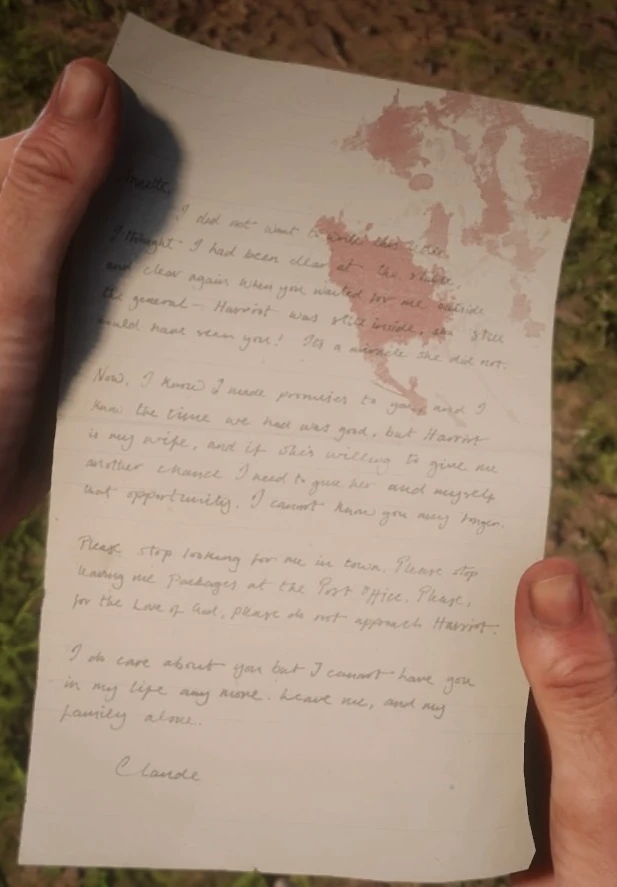 Annette,
I did not want to write this letter.
I thought I had been clear at the stable,
and clear again when you waited for me outside
the general – Harriet was still inside, she still
could have seen you! It's a miracle she did not.
Now, I know I made promises to you, and I
know the time we had was good, but Harriet
is my wife, and if she's willing to give me
another chance I need to give her and myself
that opportunity. I cannot know you any longer.
Please stop looking for me in town. Please stop
leaving me packages at the Post Office. Please,
for the love of God, please do not approach Harriet.
I do care about you but I cannot have you
in my life any more. Leave me, and my
family alone.
Claude